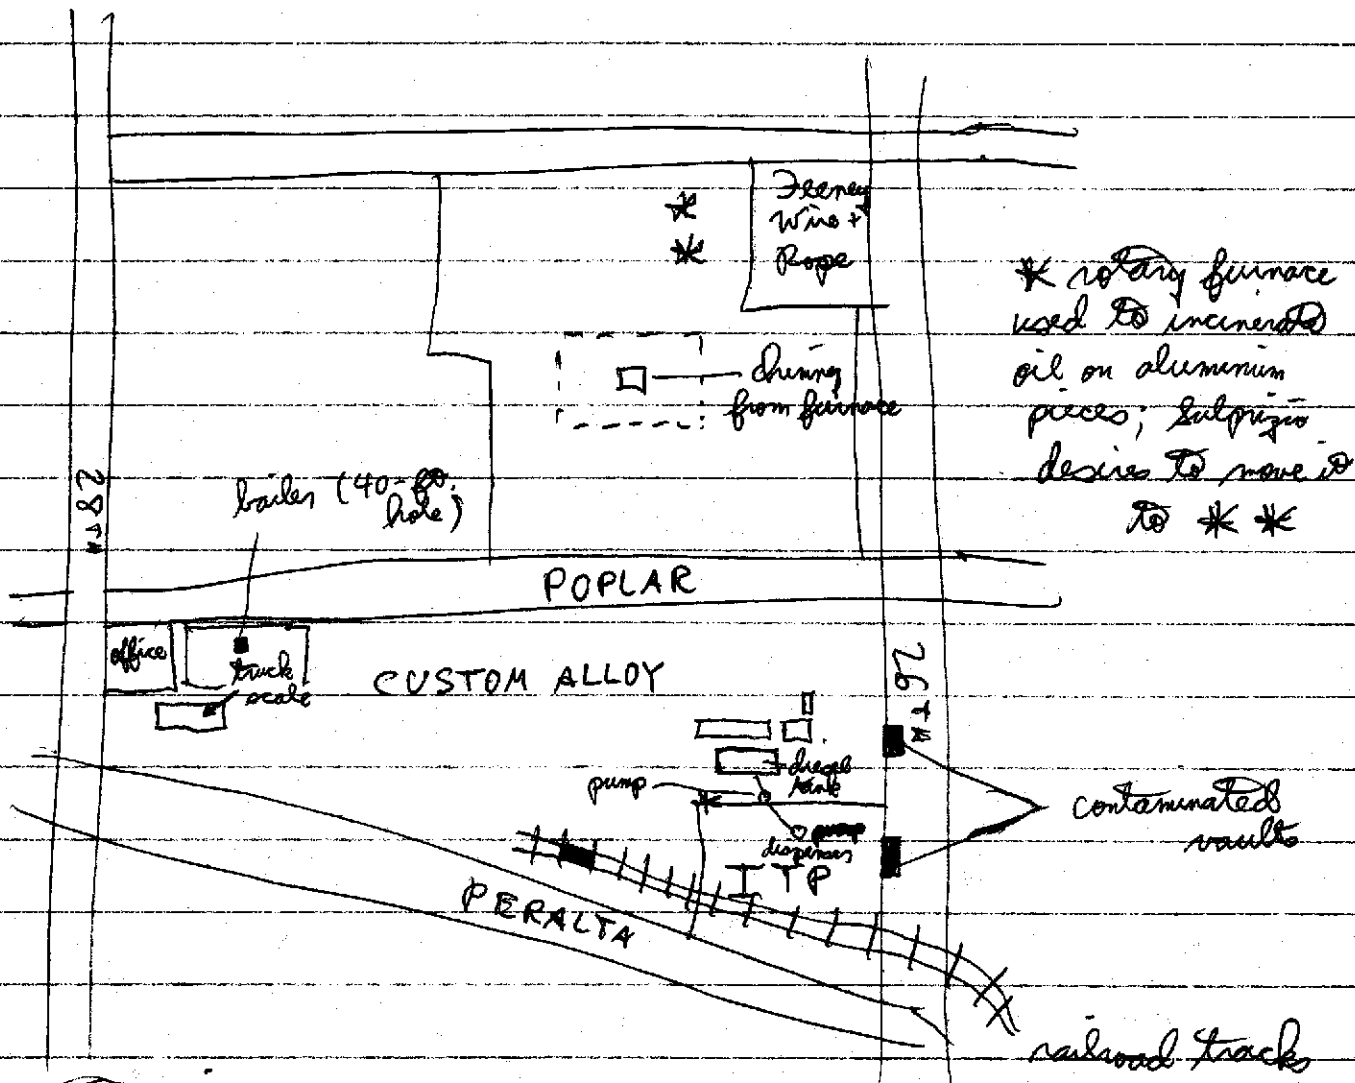 Feeney
Wire +
Rope
* rotary furnace
used to incinerate
oil on aluminum
pieces; Sulprizio
desires to move it
to * *
*
*
from furnace
28TH
bailer (40-ft.
hole)
POPLAR
office
truck
scale
CUSTOM ALLOY
26TH
diesel
tank
pump
dispenser
ITP
contaminated
vaults
PERALTA
railroad tracks